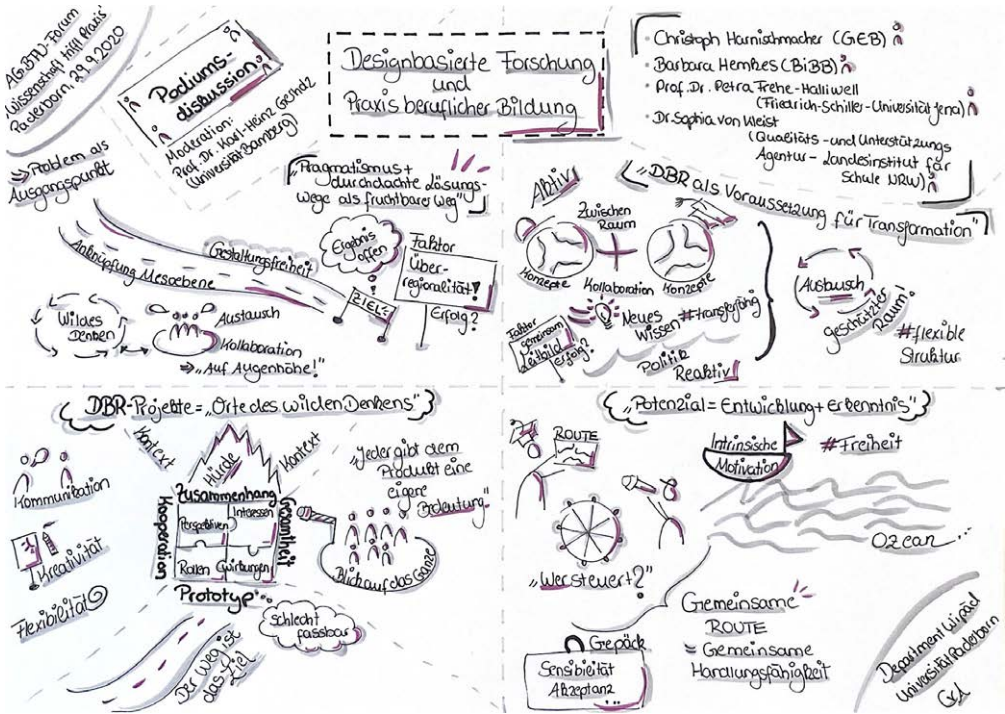 AG BFN-Forum
"Wissenschaft trifft Praxis"
Paderborn, 29.9.2020
Podiums-
diskussion
Moderation:
Prof. Dr. Karl-Heinz Gerholz
(Universität Bamberg)
Designbasierte Forschung
und
Praxis beruflicher Bildung
Christoph Harnischmacher (GEB)
Barbara Hemkes (BiBB)
Prof. Dr. Petra Frehe-Halliwell
(Friedrich-Schiller-Universität Jena)
Dr. Sophia von Kleist
(Qualitäts- und Unterstützungs
Agentur - Landesinstitut für
Schule NRW)
Problem als
Ausgangspunkt
"Pragmatismus +
durchdachte Lösungs-
wege als fruchtbarer Weg"
Anknüpfung Mesoebene
Gestaltungsfreiheit
Ergebnis
offen
ZIEL
Faktor
Über-
regionalität!
Erfolg?
Wildes
Denken
Austausch
Kollaboration
⇒ "Auf Augenhöhe!"
"DBR als Voraussetzung für Transformation"
Aktiv!
Zwischen
Raum
Konzepte
Kollaboration
Konzepte
Neues
Wissen
#transferfähig
Faktor
gemeinsam
Leitbild
Erfolg?
Politik
Reaktiv!
Austausch
geschützter
Raum!
#flexible
Struktur
DBR-Projekte = "Orte des wilden Denkens"
Kontext
Hürde
Kontext
Kommunikation
Kreativität
Flexibilität
Zusammenhang
Kooperation
Gesamtheit
Perspektiven
Interessen
Rollen
Wirkungen
Prototyp
"Jeder gibt dem
Produkt eine
eigene
Bedeutung"
Blick auf das Ganze
schlecht
fassbar
Der Weg ist
das Ziel
"Potenzial = Entwicklung + Erkenntnis"
ROUTE
Intrinsische
Motivation
#Freiheit
Ozean...
"Wer steuert?"
Gepäck
Sensibilität
Akzeptanz
...
Gemeinsame
ROUTE
= Gemeinsame
Handlungsfähigkeit
Department Wipäd
Universität Paderborn